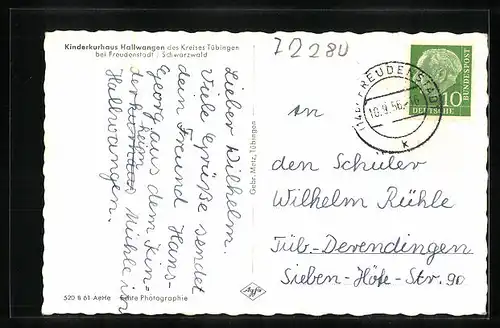 Kinderkurhaus Hallwangen des Kreises Tübingen
bei Freudenstadt : Schwarzwald
72280
Lieber Wilhelm.
Viele Grüße sendet
dein Freund Hans-
Georg aus dem Kin-
derkurhaus
heim
Mühle in
Hallwangen.
520 B 61 AeHe Echte Photographie
Gebr. Metz, Tübingen
Agfa
FREUDENSTADT
10.9.56
k
10
DEUTSCHE
BUNDESPOST
an
den Schüler
Wilhelm Rühle
Tüb.-Derendingen
Sieben-Höfe-Str. 90